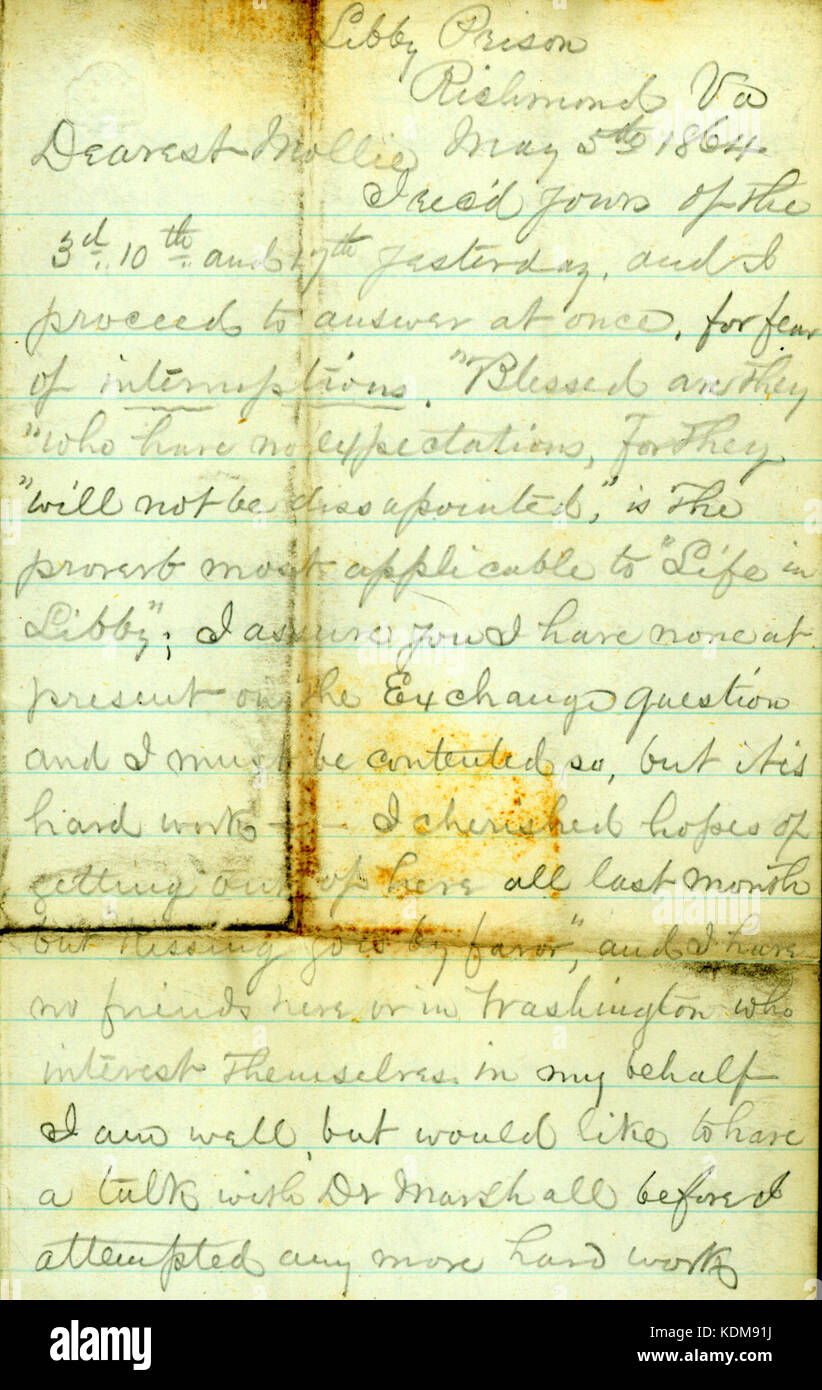 Libby Prison
Richmond Va
Dearest Mollie May 5th 1864.
I rec'd yours of the
3d. 10th and 17th yesterday, and I
proceed to answer at once, for fear
of interruptions. "Blessed are they
"who have no expectations, for they
"will not be dissapointed," is the
proverb most applicable to "Life in
Libby"; I assure you I have none at
present on the Exchange question
and I must be contented so, but it is
hard work — — I cherished hopes of
getting out of here all last month
but Kissing goes by favor", and I have
no friends here or in Washington who
interest themselves in my behalf
I am well, but would like to have
a talk with Dr Marshall before I
attempted any more hard work
alamy
Image ID: KDM91J
www.alamy.com